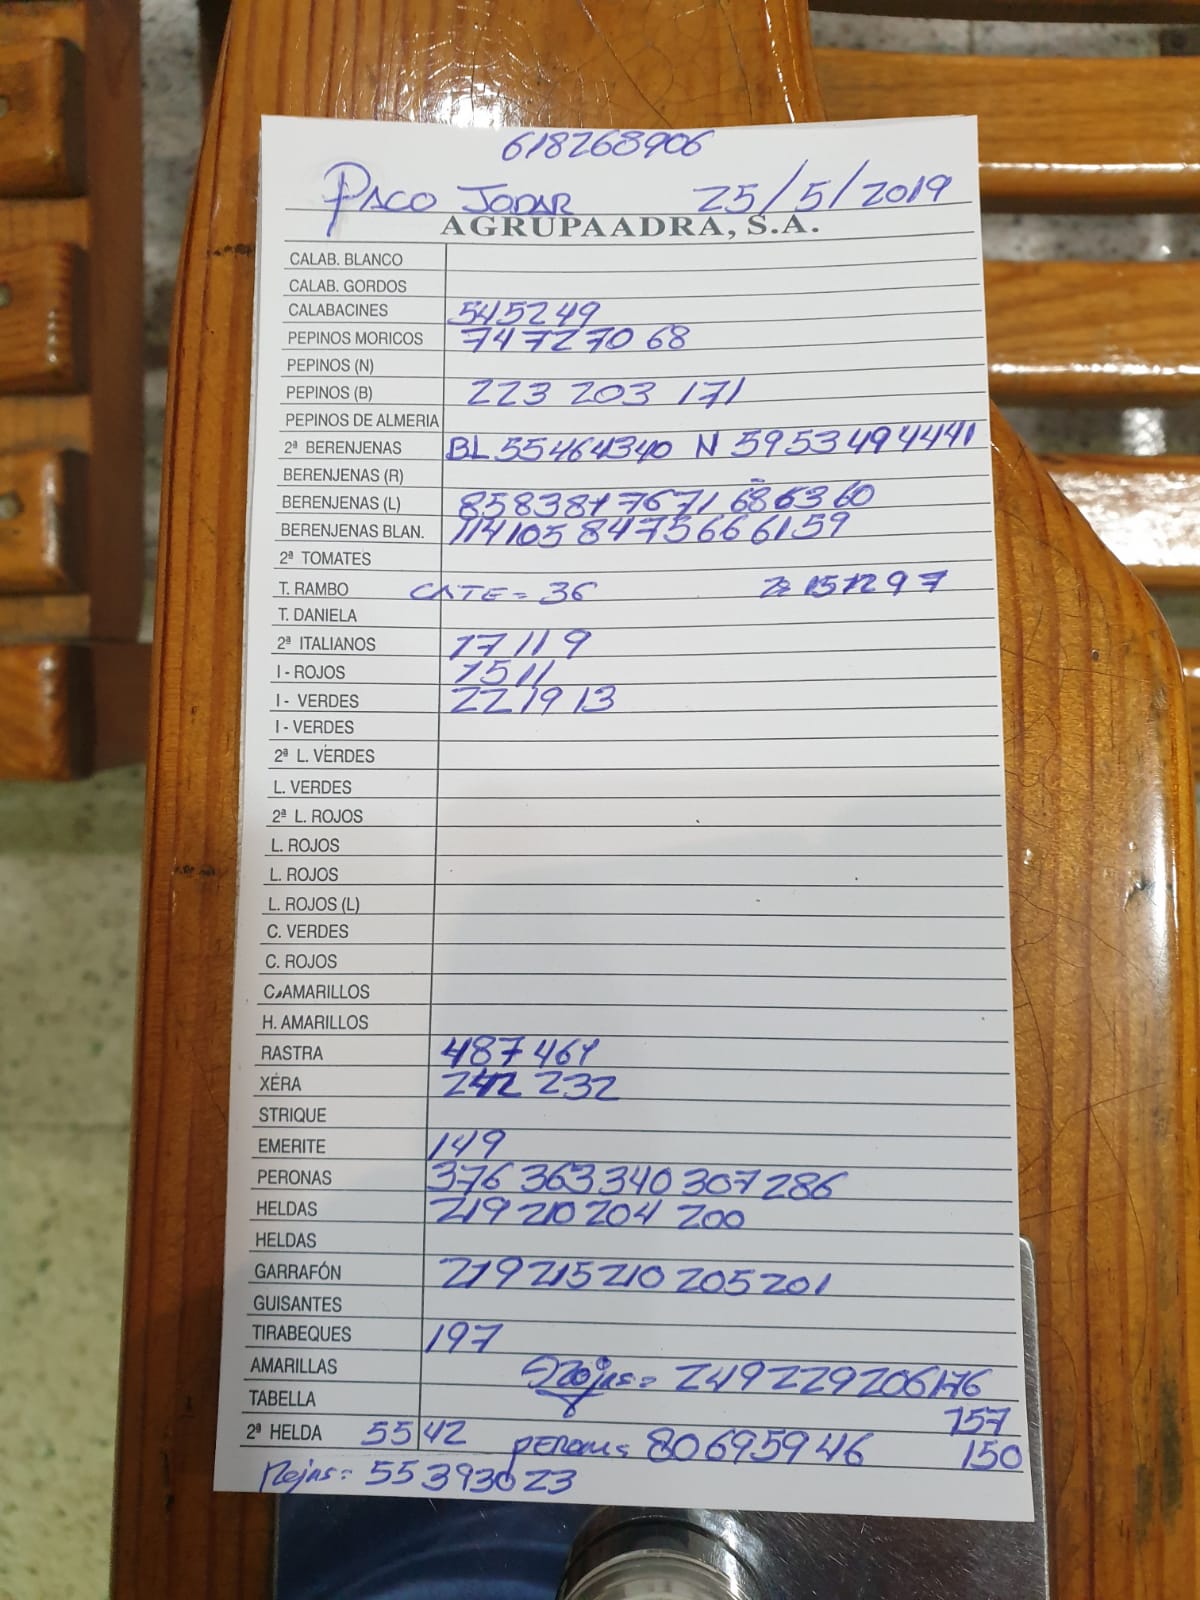 618268906
PACO JODAR 25/5/2019
AGRUPAADRA, S.A.
CALAB. BLANCO
CALAB. GORDOS
CALABACINES 545249
PEPINOS MORICOS 74 72 70 68
PEPINOS (N)
PEPINOS (B) 223 203 171
PEPINOS DE ALMERIA
2ª BERENJENAS BL 55464340 N 5953494441
BERENJENAS (R)
BERENJENAS (L) 858381 7671 686360
BERENJENAS BLAN. 114105 8475666159
2ª TOMATES
T. RAMBO CATE = 36 151297
T. DANIELA
2ª ITALIANOS 17 11 9
I - ROJOS 1511
I - VERDES 221913
I - VERDES
2ª L. VERDES
L. VERDES
2ª L. ROJOS
L. ROJOS
L. ROJOS
L. ROJOS (L)
C. VERDES
C. ROJOS
C. AMARILLOS
H. AMARILLOS
RASTRA 487 461
XÉRA 242 232
STRIQUE
EMERITE 149
PERONAS 376 363 340 307 286
HELDAS 219 210 204 200
HELDAS
GARRAFÓN 219 215 210 205 201
GUISANTES
TIRABEQUES 197
AMARILLAS Rojas = 249229206176
TABELLA 157
2ª HELDA 55 42 PERONAS 80695946 150
Rojas = 55393023